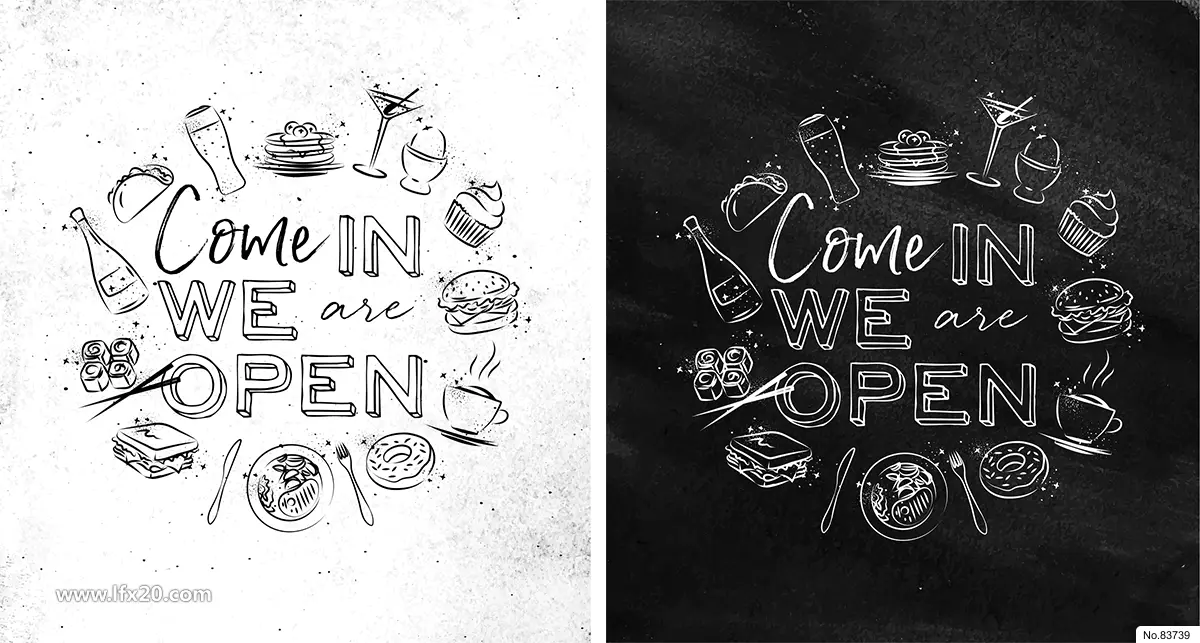 Come IN
WE are
OPEN
www.lfx20.com
Come IN
WE are
OPEN
No.83739